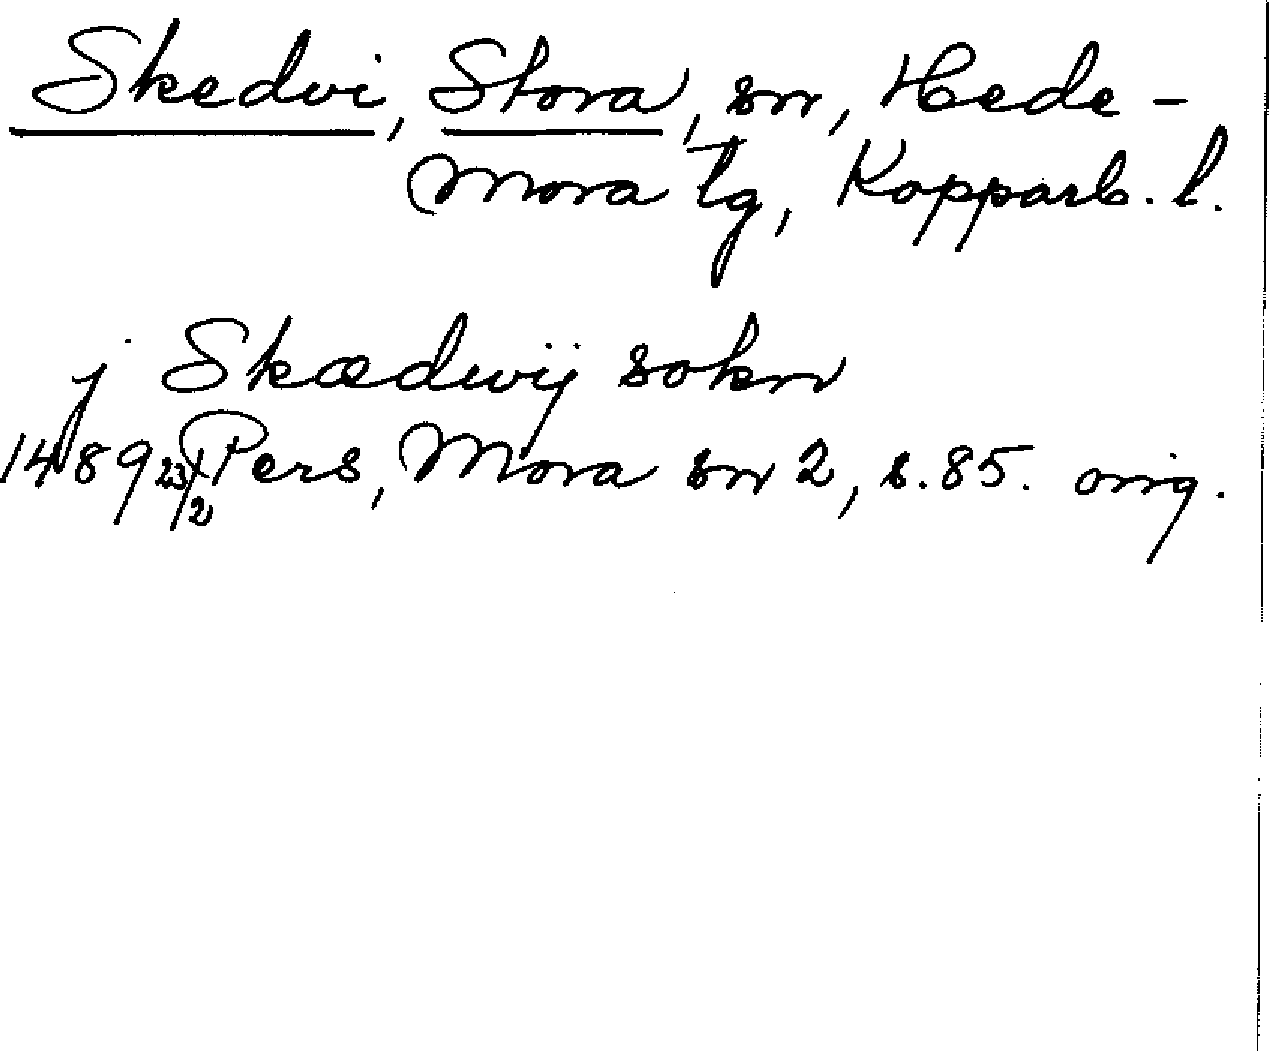 Skedvi, Stora, sn, Hede-
mora tg, Kopparb. l.
j Skædwij sokn
1489 23/2 Pers, Mora sn 2, s. 85. orig.